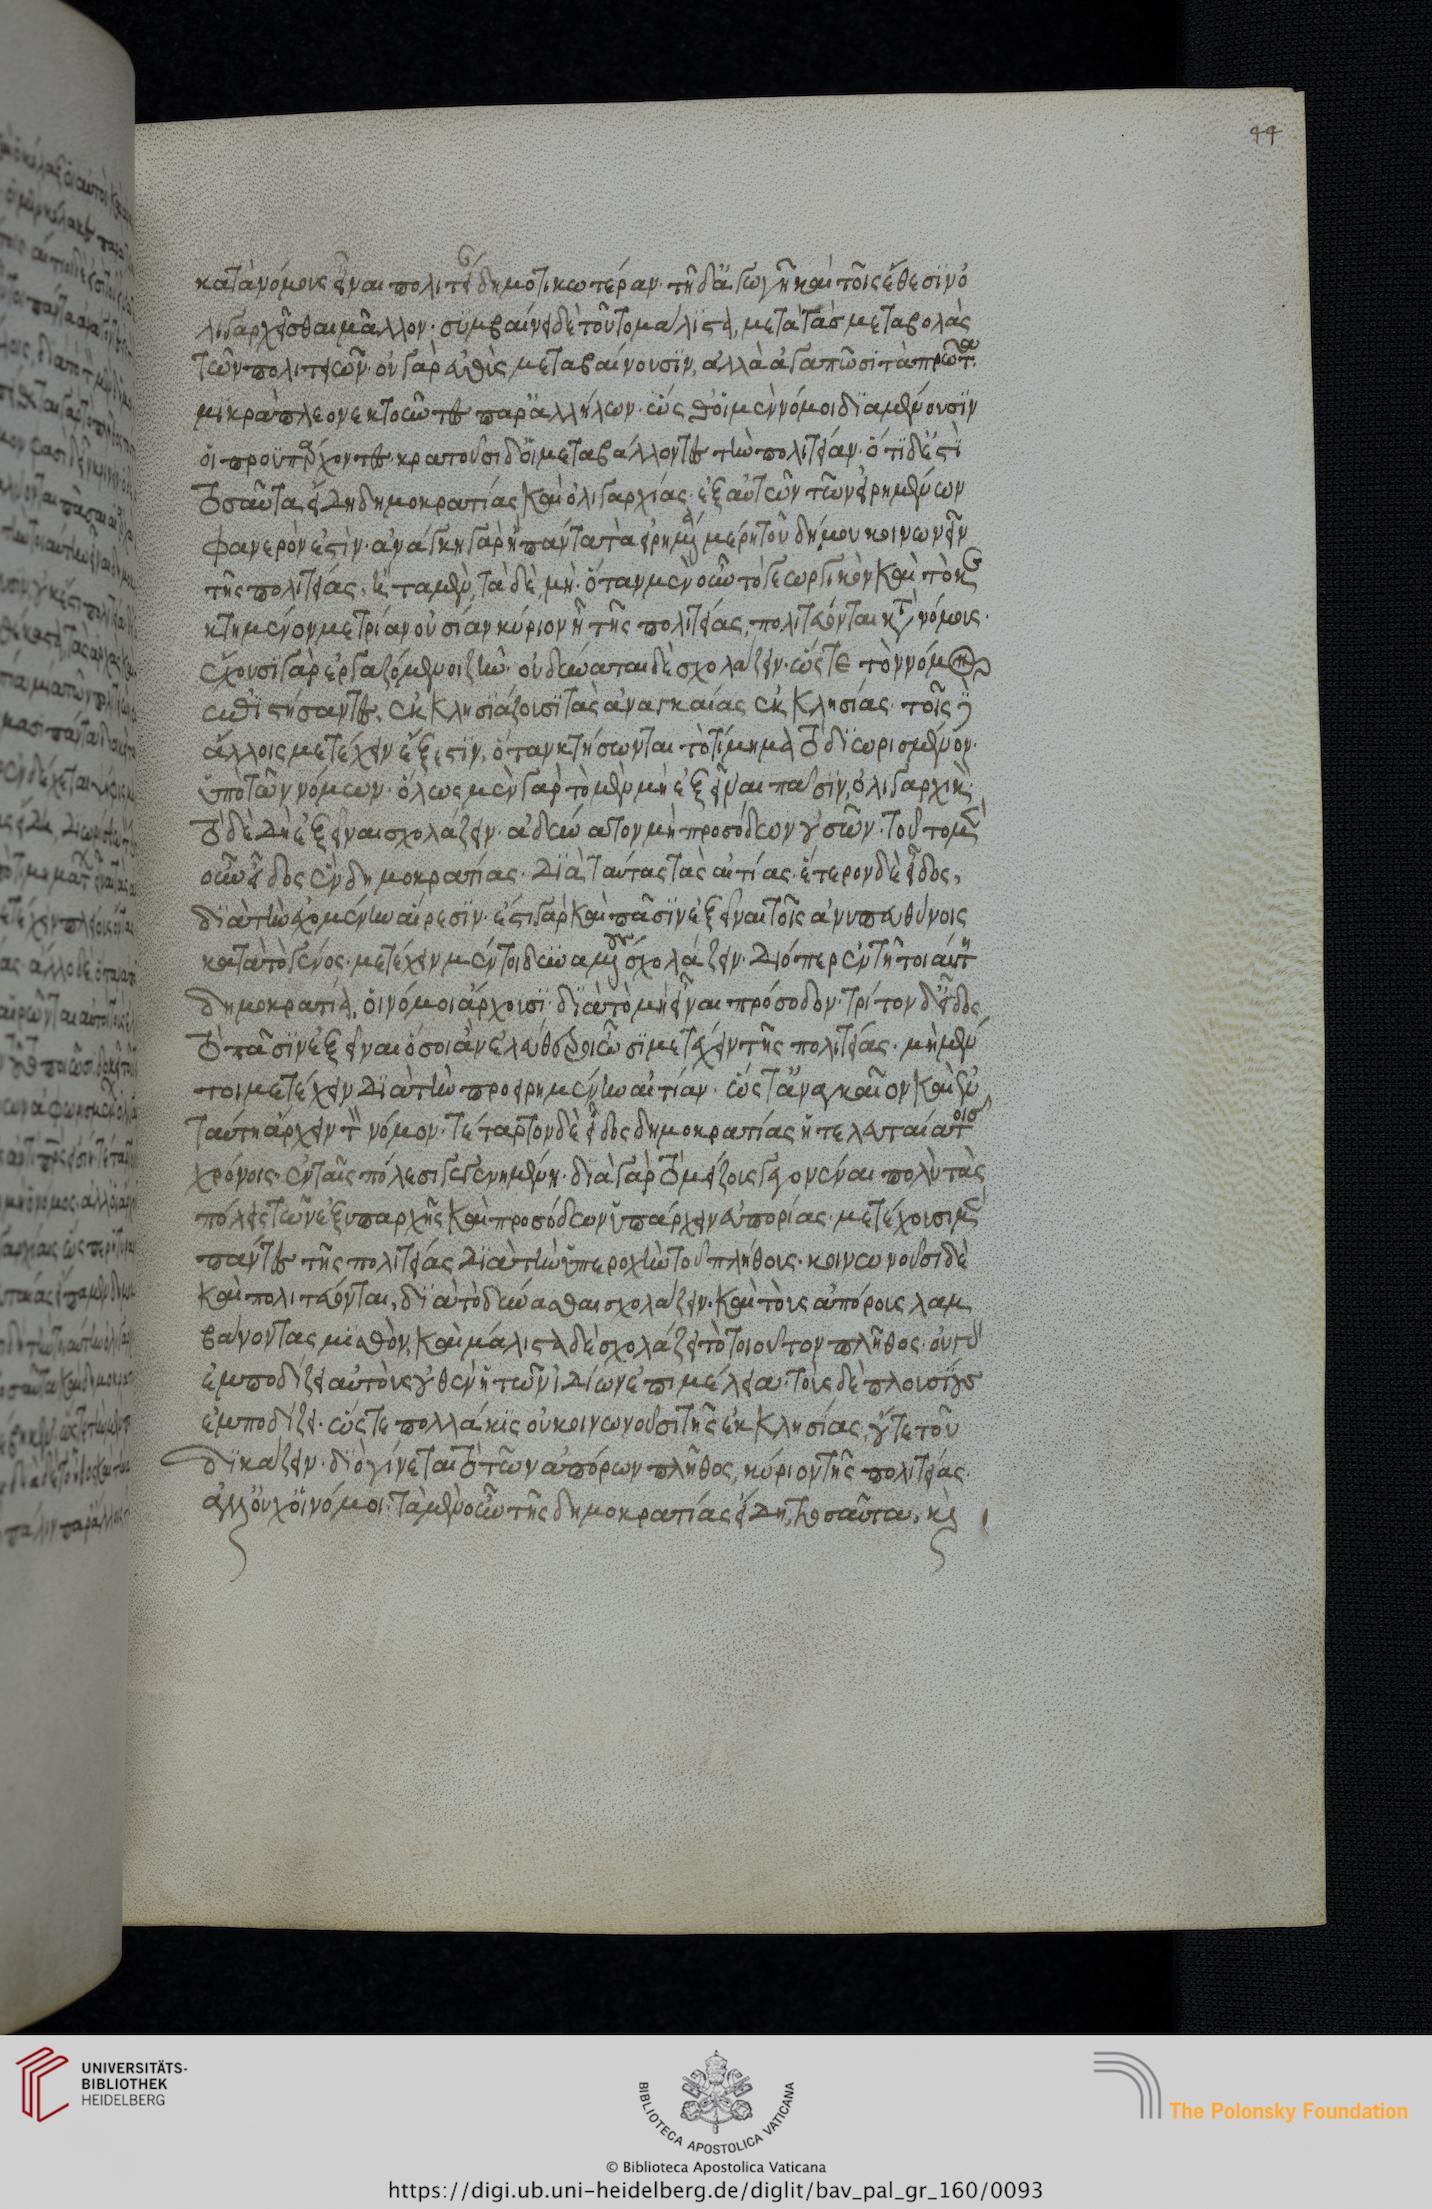 κατὰ νόμους εἶναι πολιτείαν δημοτικωτέραν· τῇ δ' ἀγωγῇ καὶ τοῖς ἔθεσιν ὀ
λιγαρχεῖσθαι μᾶλλον· συμβαίνει δὲ τοῦτο μάλιστα, μετὰ τὰς μεταβολὰς
τῶν πολιτειῶν· οὐ γὰρ εὐθὺς μεταβαίνουσιν, ἀλλὰ ἀγαπῶσι τὰ πρῶτα
μικρὰ πλεονεκτοῦντες παρ' ἀλλήλων· ὥσθ' οἱ μὲν νόμοι διαμένουσιν
οἱ προϋπάρχοντες· κρατοῦσι δ' οἱ μεταβάλλοντες τὴν πολιτείαν· ὅτι δ' ἐστὶ
τοσαῦτα εἴδη δημοκρατίας καὶ ὀλιγαρχίας· ἐξ αὐτῶν τῶν εἰρημένων
φανερόν ἐστιν· ἀνάγκη γὰρ ἢ πάντα τὰ εἰρημένα μέρη τοῦ δήμου κοινωνεῖν
τῆς πολιτείας, ἢ τὰ μὲν, τὰ δὲ, μή· ὅταν μὲν οὖν τὸ γεωργικὸν καὶ τὸ κε
κτημένον μετρίαν οὐσίαν κύριον ᾖ τῆς πολιτείας, πολιτεύονται κατὰ νόμους·
ἔχουσι γὰρ ἐργαζόμενοι ζῆν· οὐ δύνανται δὲ σχολάζειν· ὥστε τὸν νόμον
ἐπιστήσαντες, ἐκκλησιάζουσι τὰς ἀναγκαίας ἐκκλησίας· τοῖς δὲ
ἄλλοις μετέχειν ἔξεστιν, ὅταν κτήσωνται τὸ τίμημα τὸ διωρισμένον·
ὑπὸ τῶν νόμων· ὅλως μὲν γὰρ τὸ μὲν μὴ ἐξεῖναι πᾶσιν, ὀλιγαρχικόν·
τὸ δὲ δὴ ἐξεῖναι σχολάζειν· ἀδύνατον μὴ προσόδων οὐσῶν· τοῦτο μὲν
οὖν εἶδος ἓν δημοκρατίας· διὰ ταύτας τὰς αἰτίας· ἕτερον δὲ εἶδος,
διὰ τὴν ἐχομένην αἵρεσιν· ἔστι γὰρ καὶ πᾶσιν ἐξεῖναι τοῖς ἀνυπευθύνοις
κατὰ τὸ γένος· μετέχειν μέντοι δυναμένους σχολάζειν· διόπερ ἐν τῇ τοιαύτῃ
δημοκρατίᾳ, οἱ νόμοι ἄρχουσι· διὰ τὸ μὴ εἶναι πρόσοδον· τρίτον δ' εἶδος
τὸ πᾶσιν ἐξεῖναι ὅσοι ἂν ἐλεύθεροι ὦσι μετέχειν τῆς πολιτείας· μὴ μέν
τοι μετέχειν διὰ τὴν προειρημένην αἰτίαν· ὥστ' ἀναγκαῖον καὶ ἐν
ταύτῃ ἄρχειν τὸν νόμον· τέταρτον δὲ εἶδος δημοκρατίας ἡ τελευταία τοῖς
χρόνοις· ἐν ταῖς πόλεσι γεγενημένη· διὰ γὰρ τὸ μείζους γεγονέναι πολὺ τὰς
πόλεις τῶν ἐξυπαρχῆς καὶ προσόδων ὑπάρχειν εὐπορίας· μετέχουσι μὲν
πάντες τῆς πολιτείας διὰ τὴν ὑπεροχὴν τοῦ πλήθους· κοινωνοῦσι δὲ
καὶ πολιτεύονται, διὰ τὸ δύνασθαι σχολάζειν· καὶ τοὺς ἀπόρους λαμ
βάνοντας μισθόν, καὶ μάλιστα δὲ σχολάζει τὸ τοιοῦτον πλῆθος· οὐ γὰρ
ἐμποδίζει αὐτοὺς οὐθὲν ἡ τῶν ἰδίων ἐπιμέλεια· τοὺς δὲ πλουσίους
ἐμποδίζει· ὥστε πολλάκις οὐ κοινωνοῦσι τῆς ἐκκλησίας, οὔτε τοῦ
δικάζειν· διὸ γίνεται τὸ τῶν ἀπόρων πλῆθος, κύριον τῆς πολιτείας·
ἀλλ' οὐχ οἱ νόμοι· τὰ μὲν οὖν τῆς δημοκρατίας εἴδη, τοσαῦτα, καὶ
44
UNIVERSITÄTS-
BIBLIOTHEK
HEIDELBERG
BIBLIOTECA APOSTOLICA VATICANA
The Polonsky Foundation
© Biblioteca Apostolica Vaticana
https://digi.ub.uni-heidelberg.de/diglit/bav_pal_gr_160/0093